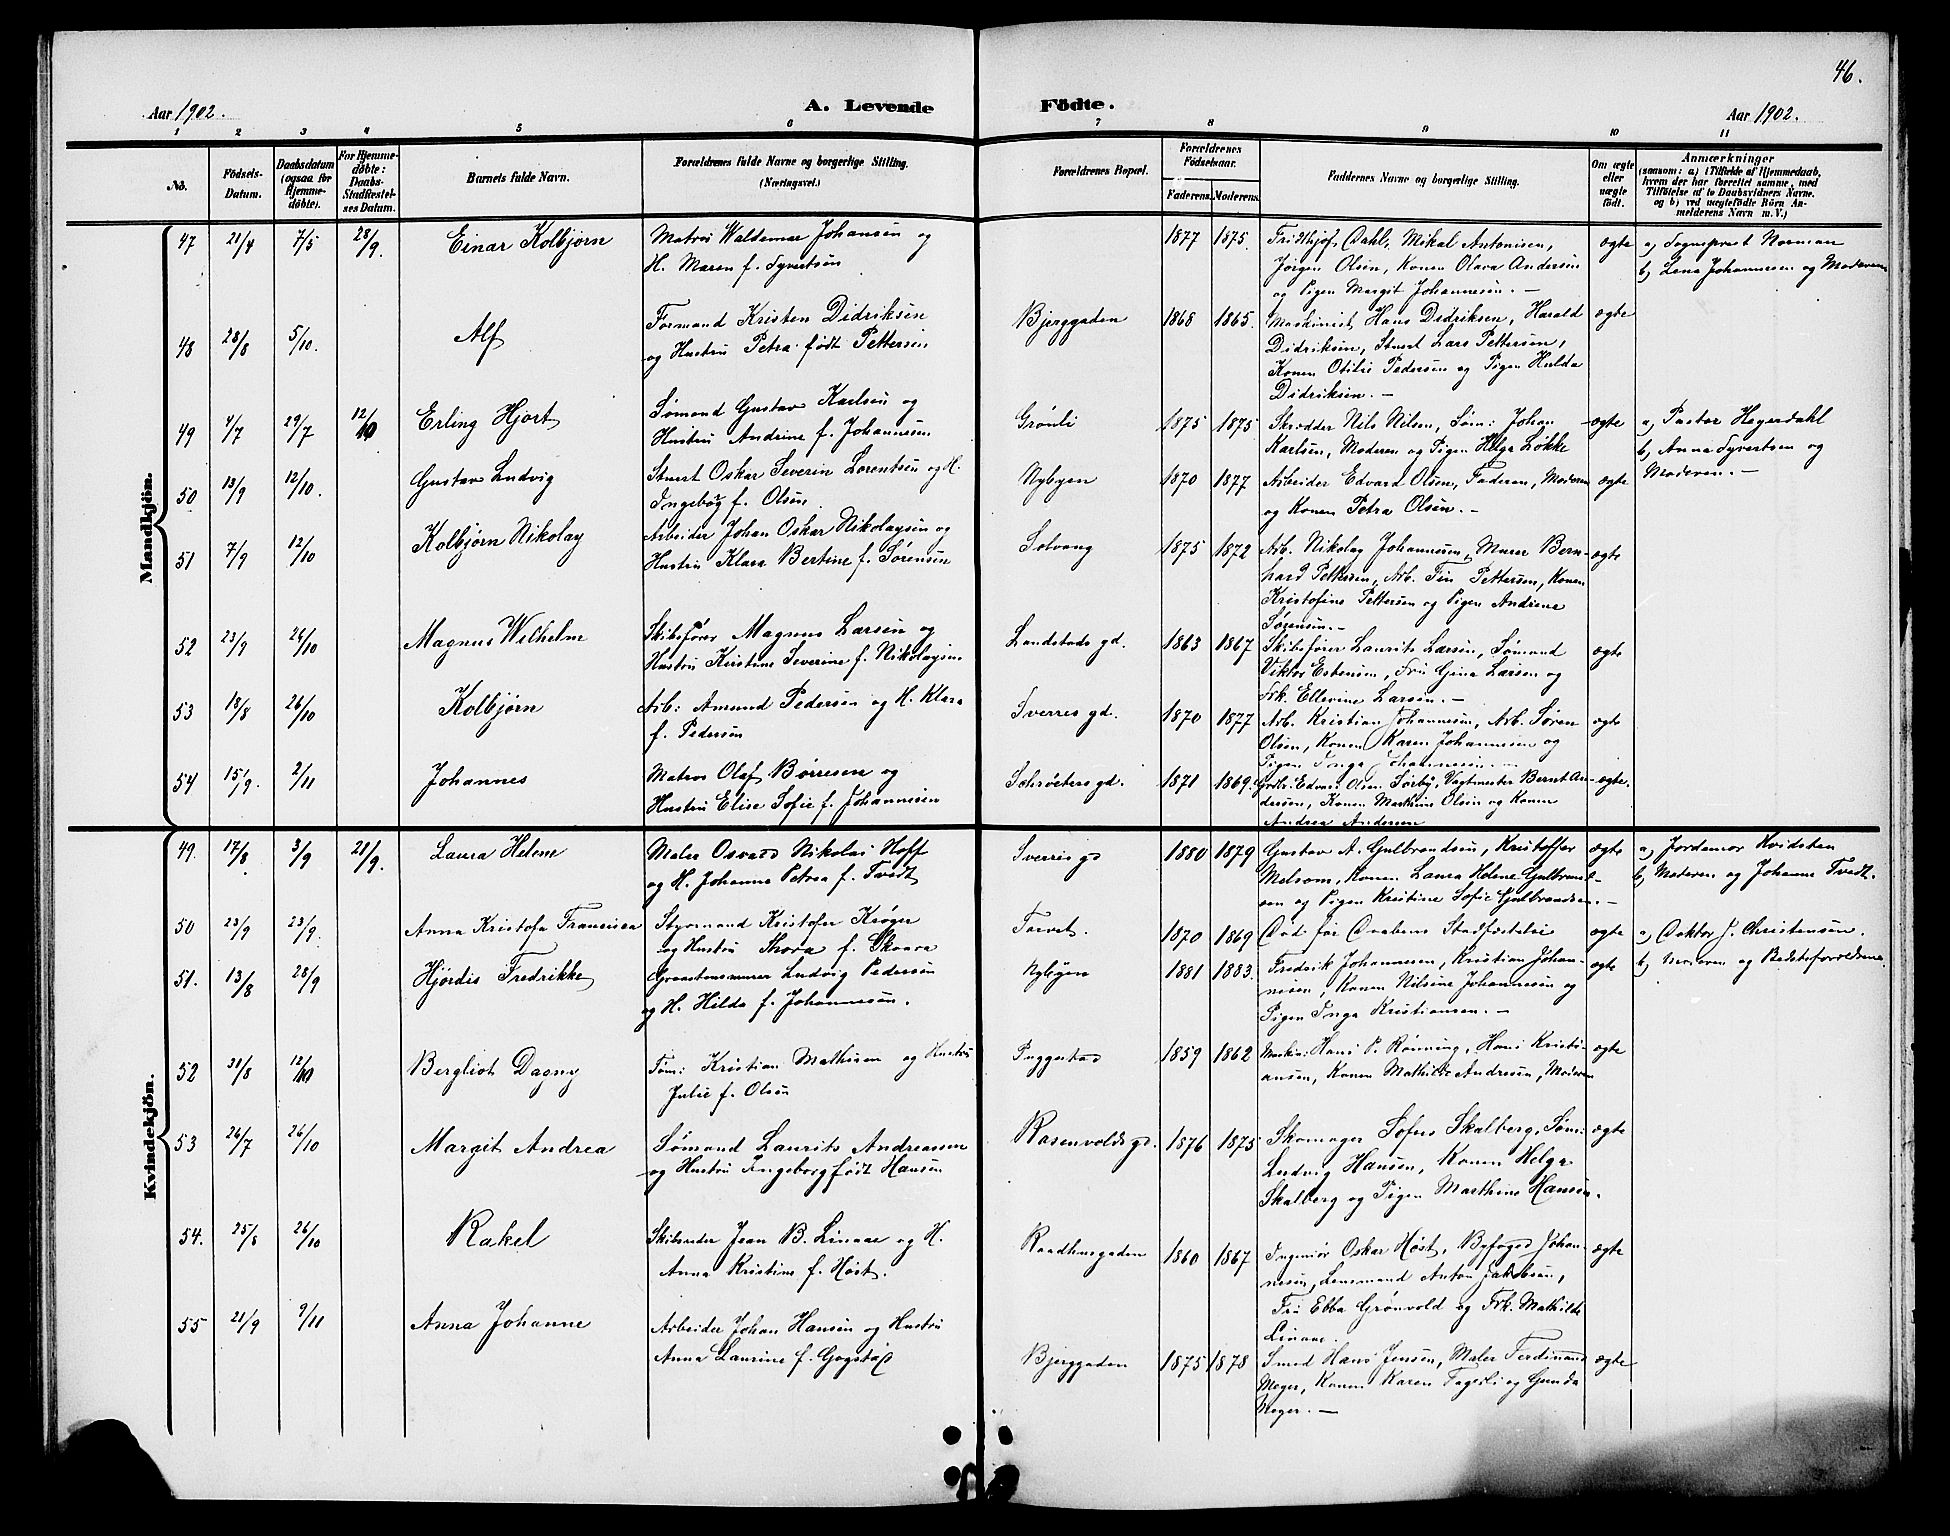 46.
Aar 1902.
A. Levende Födte.
Aar 1902.
1 2 3 4 5 6 7 8 9 10 11
No.
Födsels-Datum.
Daabsdatum (ogsaa for Hjemmedöbte).
For Hjemmedöbte: Daabs-Stadfæstelses Datum.
Barnets fulde Navn.
Forældrenes fulde Navne og borgerlige Stilling.
(Næringsvei.)
Forældrenes Bopæl.
Forældrenes Födselsaar.
Faderens. Moderens.
Faddernes Navne og borgerlige Stilling.
Om ægte eller uægte födt.
Anmærkninger
(saasom: a) i Tilfælde af Hjemmedaab, hvem der har forrettet samme, med Tilföielse af to Daabsvidners Navne. og b) ved uægtefödte Börn Anmelderens Navn m. V.)
Mandkjön.
47 21/4 7/5 28/9. Einar Kolbjørn
Matros Waldemar Johansen og
H. Maren f. Syvertsen
1877 1875.
Fridthjof Dahl, Mikal Antonisen,
Jørgen Olsen, Konen Olava Andersen
og Pigen Margit Johannesen. —
ægte
a) Sogneprest Norman
b) Lena Johannesen og Moderen
48 28/8 5/10. Alf
Formand Kristen Didriksen
og Hustru Petra født Pettersen
Bjerggaden 1868 1865.
Maskinist Hans Didriksen, Harald
Didriksen, Stuert Lars Pettersen,
Konen Otilie Pedersen og Pigen Hulda
Didriksen. —
ægte
49 4/7 29/7 12/10 Erling Hjort
Sømand Gustav Karlsen og
Hustru Andrine f. Johannesen
Grønli 1875 1875
Skrædder Nils Nilsen, Søm: Johan
Karlsen, Moderen og Pigen Helga Løkke
ægte
a) Pastor Heyerdahl
b) Anna Syvertsen og
Moderen. —
50 13/9 12/10. Gustav Ludvig
Stuert Oskar Severin Lorentsen og H.
Ingebog f. Olsen.
Nybyen 1870 1877
Arbeider Edvard Olsen, Faderen, Moderen
og Konen Petra Olsen. —
ægte
51 7/9 12/10 Kolbjørn Nikolay
Arbeider Johan Oskar Nikolaysen og
Hustru Klara Bertine f. Sørensen
Solvang 1875 1872
Arb. Nikolay Johannesen, Murer Bern-
hard Pettersen, Arb. Tin Pettersen, Konen
Kristofine Pettersen og Pigen Andrine
Sørensen. —
ægte
52 23/9 26/10 Magnus Wilhelm
Skibsfører Magnus Larsen og
Hustru Kristine Severine f. Nikolaysen
Landstads gd. 1863 1867
Skibsfører Laurits Larsen, Sømand
Viktor Esbensen, Fru Gina Larsen og
Frk. Ellevine Larsen. —
ægte
53 18/8 26/10 Kolbjørn
Arb: Amund Pedersen og H. Klara
f. Pedersen
Sverres gd. 1870 1877
Arb. Kristian Johannesen, Arb. Søren
Olsen, Konen Karen Johannesen og
Pigen Inga Johannesen. —
ægte
54 15/9. 2/11 Johannes
Matros Olaf Børresen og
Hustru Elise Sofie f. Johannesen
Schrøeters gd. 1871 1869.
Edvard Olsen Sørby, Vagtmester Bernt An-
dersen, Konen Marthine Olsen og Konen
Andrea Andersen
ægte.
Kvindekjön.
49. 17/8. 3/9 21/9. Laura Helene
Maler Osvald Nikolai Hoff
og H. Johanne Petrea f. Tvedt
Sverris gd 1880 1879
Gustav A. Gulbrandsen, Kristoffer
Melsom, Konen Laura Helene Gulbrand-
sen og Pigen Kristine Sofie Gulbrandsen. —
ægte
a) Jordemor Kvidsten
b) Moderen og Johanne Tvedt.
50 23/9 23/9. Anna Kristofa Fransisca
Styrmand Kristofer Krøger
og Hustru Thora f. Skaara
Torvet. 1870 1869
Død før Daabens Stadfæstelse
ægte
a) Doktor J. Christensen.
b) Moderen og Bedsteforældrene.
51. 13/8 28/9 Hjørdis Fredrikke
Ludvig Pedersen
og H. Hilda f. Johannesen.
Nybyen 1881 1883.
Fredrik Johannesen, Kristian Johan-
nesen, Konen Nilsine Johannesen og
Pigen Inga Kristiansen. —
ægte
52 31/8 12/10 Bergliot Dagny
Tøm: Kristian Mathisen og Hustru
Julie f. Olsen
Puggestad 1859 1862
Maskin: Hans P. Rønning, Hans Kristi-
ansen, Konen Mathilde Andresen, Moderen
ægte
53 26/7 26/10 Margit Andrea
Sømand Laurits Andreassen
og Hustru Ingeborg født Hansen
Rosenvolds gd. 1876 1875
Skomager Sofus Skalberg, Søm:
Ludvig Hansen, Konen Helga
Skalberg og Pigen Marthine Hansen.
ægte
54. 25/8 26/10 Rakel
Skibsreder Jean B. Linaae og H.
Anna Kristine f. Høst.
Raadhusgaden 1860 1867
Ingeniør Oskar Høst, Byfoged Johan-
nesen, Lensmand Anton Jakobsen,
Fru Ebba Grønvold og Frk. Mathilde
Linaae.
ægte
55 21/9 9/11 Anna Johanne
Arbeider Johan Hansen og Hustru
Anna Laurine f. Gogstad
Bjerggaden 1875 1878
Smed Hans Jensen, Maler Ferdinand
Meyer, Konen Karen Fagerli og Gunda
Meyer. —
ægte